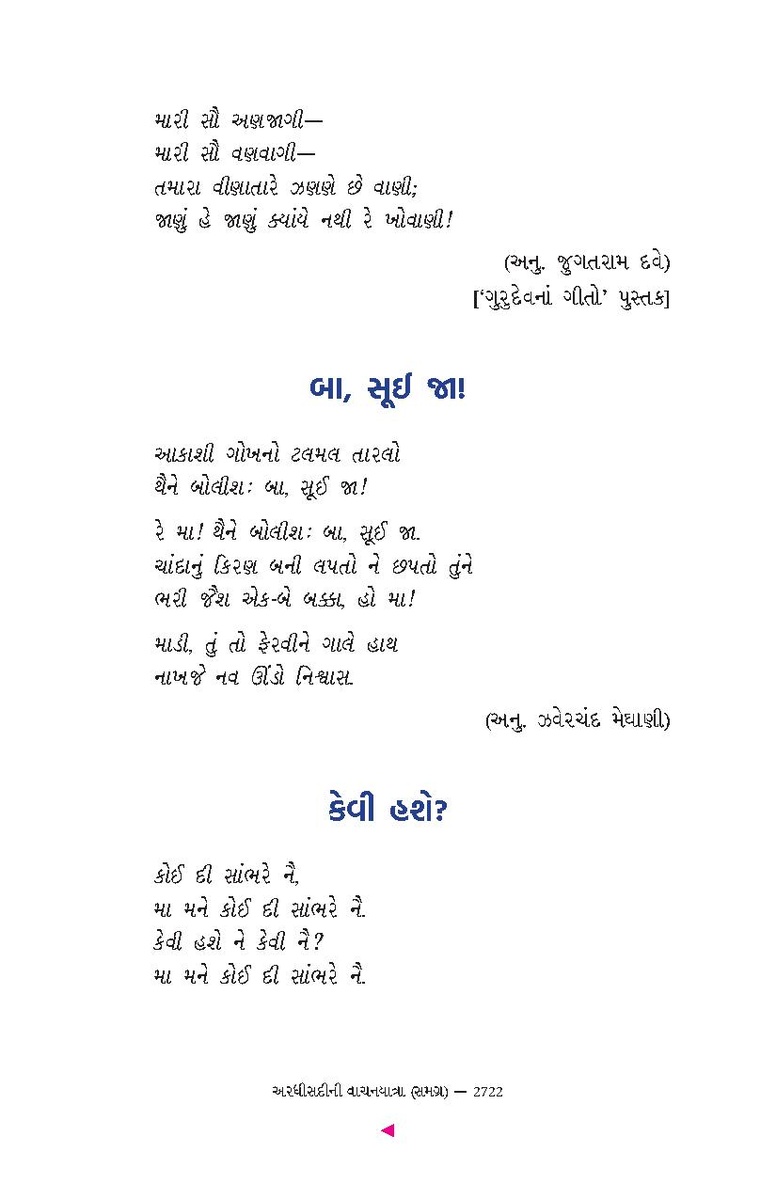 મારી સૌ અણજાગી—
મારી સૌ વણવાગી—
તમારા વીણાતારે ઝણણે છે વાણી;
જાણું હે જાણું ક્યાંયે નથી રે ખોવાણી!
(અનુ. જુગતરામ દવે)
[‘ગુરુદેવનાં ગીતો’ પુસ્તક]
બા, સૂઈ જા!
આકાશી ગોખનો ટલમલ તારલો
થૈને બોલીશઃ બા, સૂઈ જા!
રે મા! થૈને બોલીશઃ બા, સૂઈ જા.
ચાંદાનું કિરણ બની લપતો ને છપતો તુંને
ભરી જૈશ એક-બે બક્કા, હો મા!
માડી, તું તો ફેરવીને ગાલે હાથ
નાખજે નવ ઊંડો નિશ્વાસ.
(અનુ. ઝવેરચંદ મેઘાણી)
કેવી હશે?
કોઈ દી સાંભરે નૈ,
મા મને કોઈ દી સાંભરે નૈ.
કેવી હશે ને કેવી નૈ?
મા મને કોઈ દી સાંભરે નૈ.
અરધીસદીની વાચનયાત્રા (સમગ્ર) — 2722